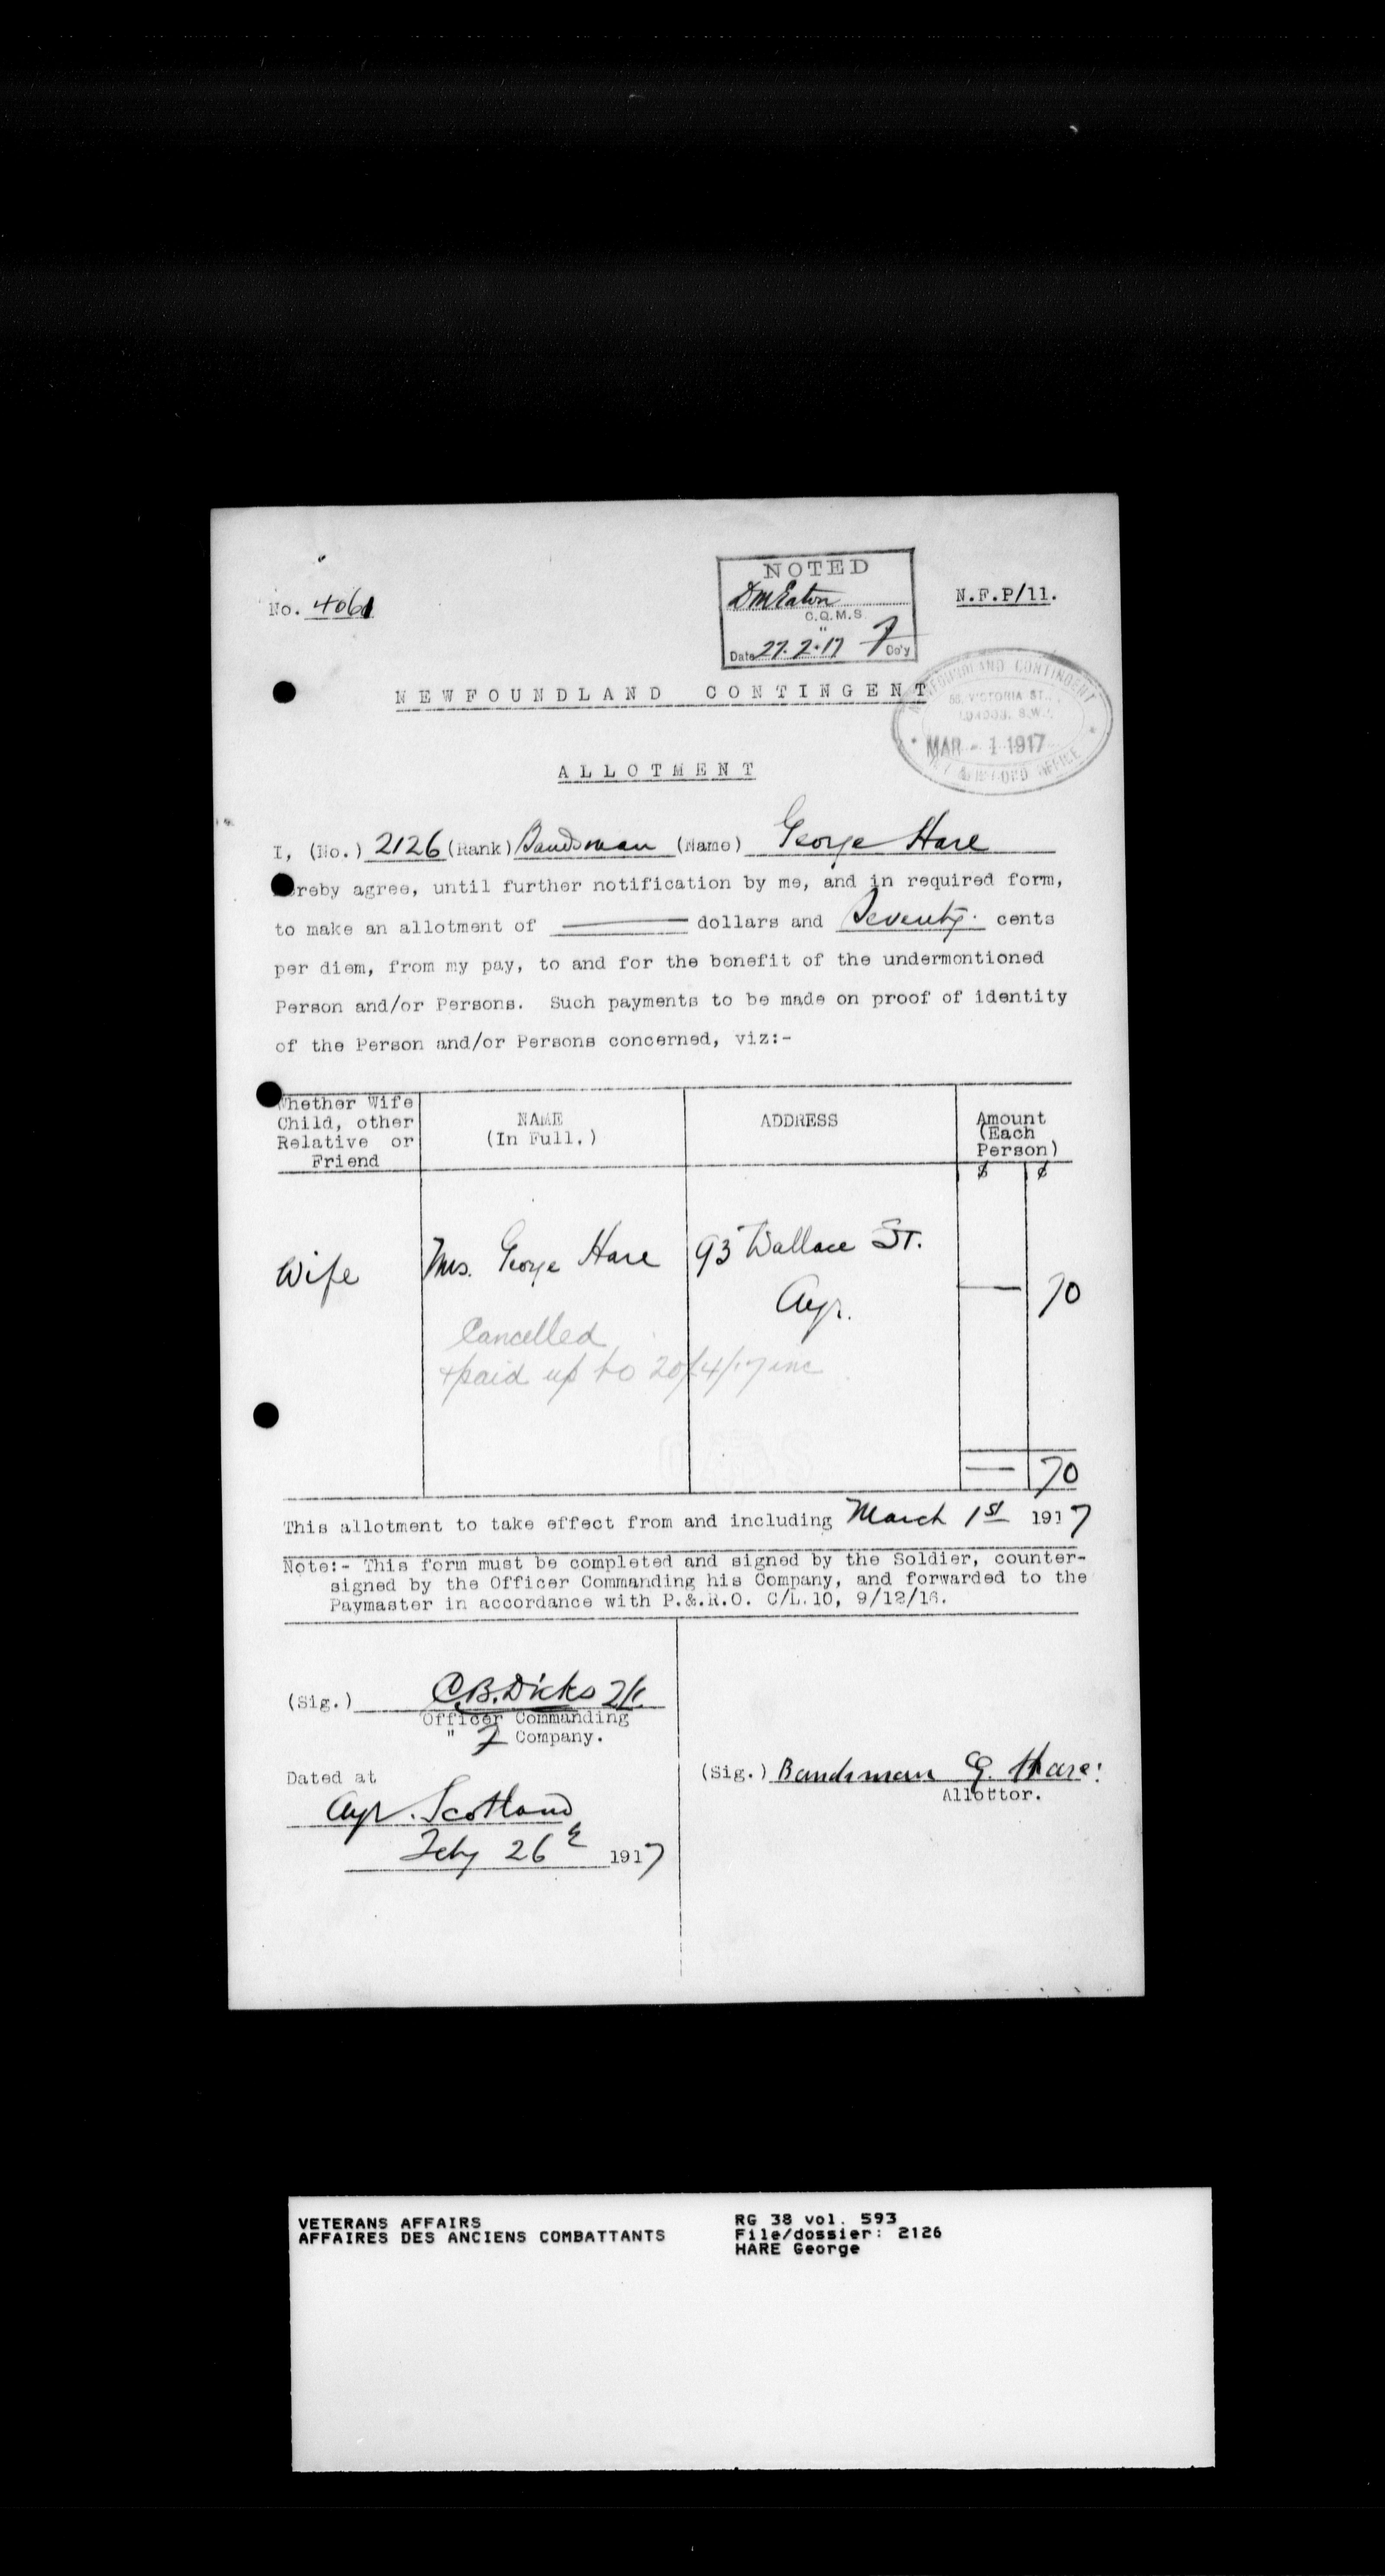 No. 4061
NOTED
DM Eaton
C.Q.M.S.
"
Date 27.2.17 F Co'y
N.F.P/11.
NEWFOUNDLAND CONTINGENT
NEWFOUNDLAND CONTINGENT
58, VICTORIA ST.,
LONDON, S.W.
MAR - 1 1917
PAY & RECORD OFFICE
ALLOTMENT
I, (No.) 2126 (Rank) Bandsman (Name) George Hare
reby agree, until further notification by me, and in required form,
to make an allotment of ——— dollars and Seventy cents
per diem, from my pay, to and for the benefit of the undermentioned
Person and/or Persons. Such payments to be made on proof of identity
of the Person and/or Persons concerned, viz:-
Whether Wife
Child, other
Relative or
Friend
NAME
(In Full.)
ADDRESS
Amount
(Each
Person)
$ ¢
Wife Mrs. George Hare 93 Wallace St.
Ayr. — 70
Cancelled
+ paid up to 20/4/17 inc
— 70
This allotment to take effect from and including March 1st 1917
Note:- This form must be completed and signed by the Soldier, counter-
signed by the Officer Commanding his Company, and forwarded to the
Paymaster in accordance with P.&.R.O. C/L.10, 9/12/16.
(Sig.) C.B. Dicks 2/Lt.
Officer Commanding
" F Company.
Dated at
Ayr. Scotland
Feby 26th 1917
(Sig.) Bandsman G. Hare.
Allottor.
VETERANS AFFAIRS
AFFAIRES DES ANCIENS COMBATTANTS
RG 38 vol. 593
File/dossier: 2126
HARE George